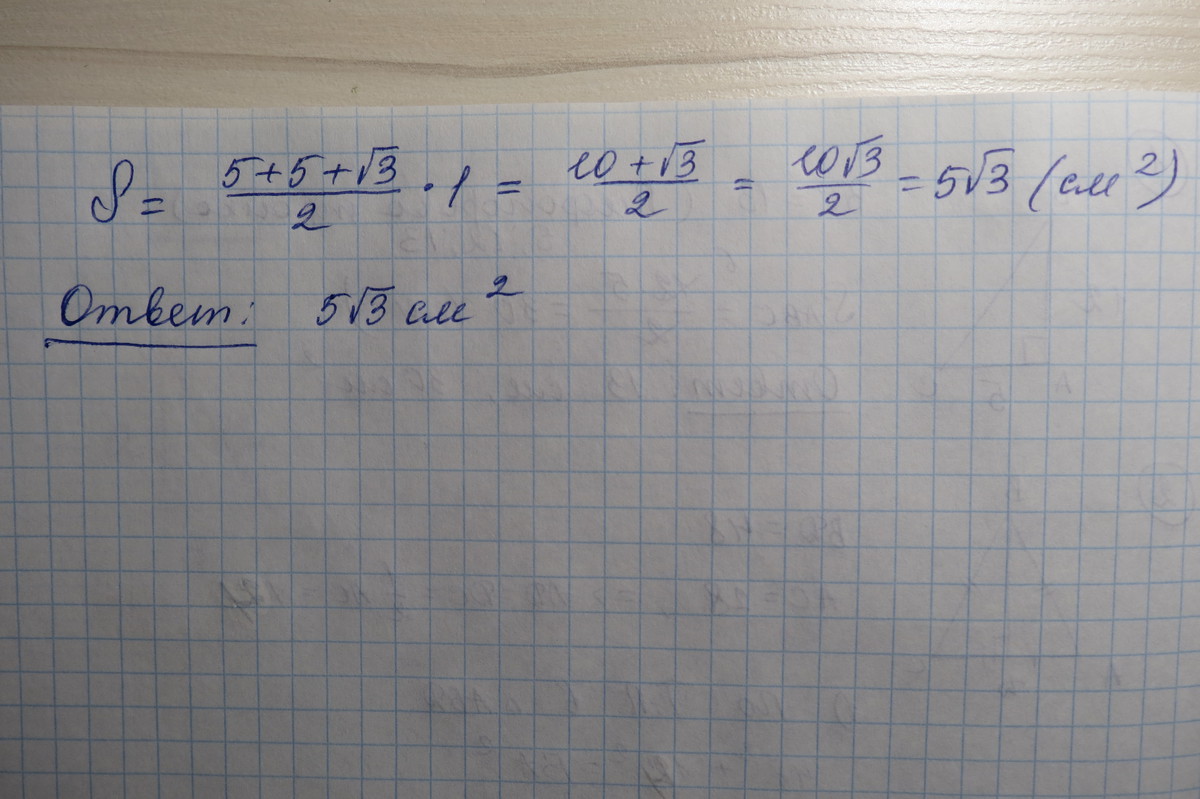 S = (5+5+√3)/2 · 1 = (10+√3)/2 = (10√3)/2 = 5√3 (см²)
Ответ: 5√3 см²